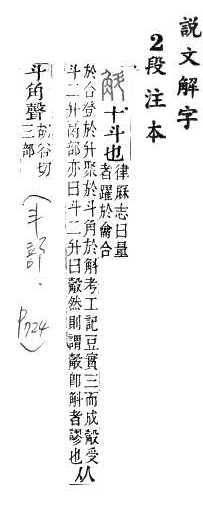 說文解字
2段注本
斛 十斗也
律厤志曰量
者躍於龠合
於合登於升聚於斗角於斛考工記豆實三而成觳受
斗二升鬲部亦曰斗二升曰觳然則謂觳卽斛者謬也
从
斗角聲
胡谷切
三部
(斗部.P724)